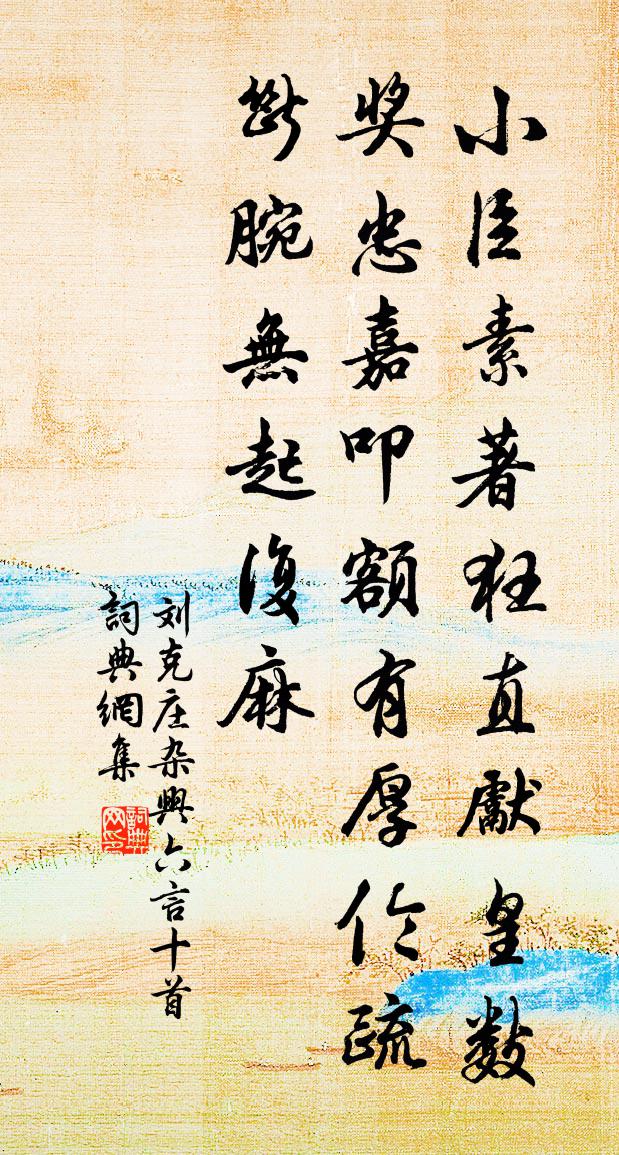 小臣素著狂直獻皇數
奖忠嘉叩額有厚伦疏
斷腕無起復麻
刘克庄杂興六言十首
詞典網集